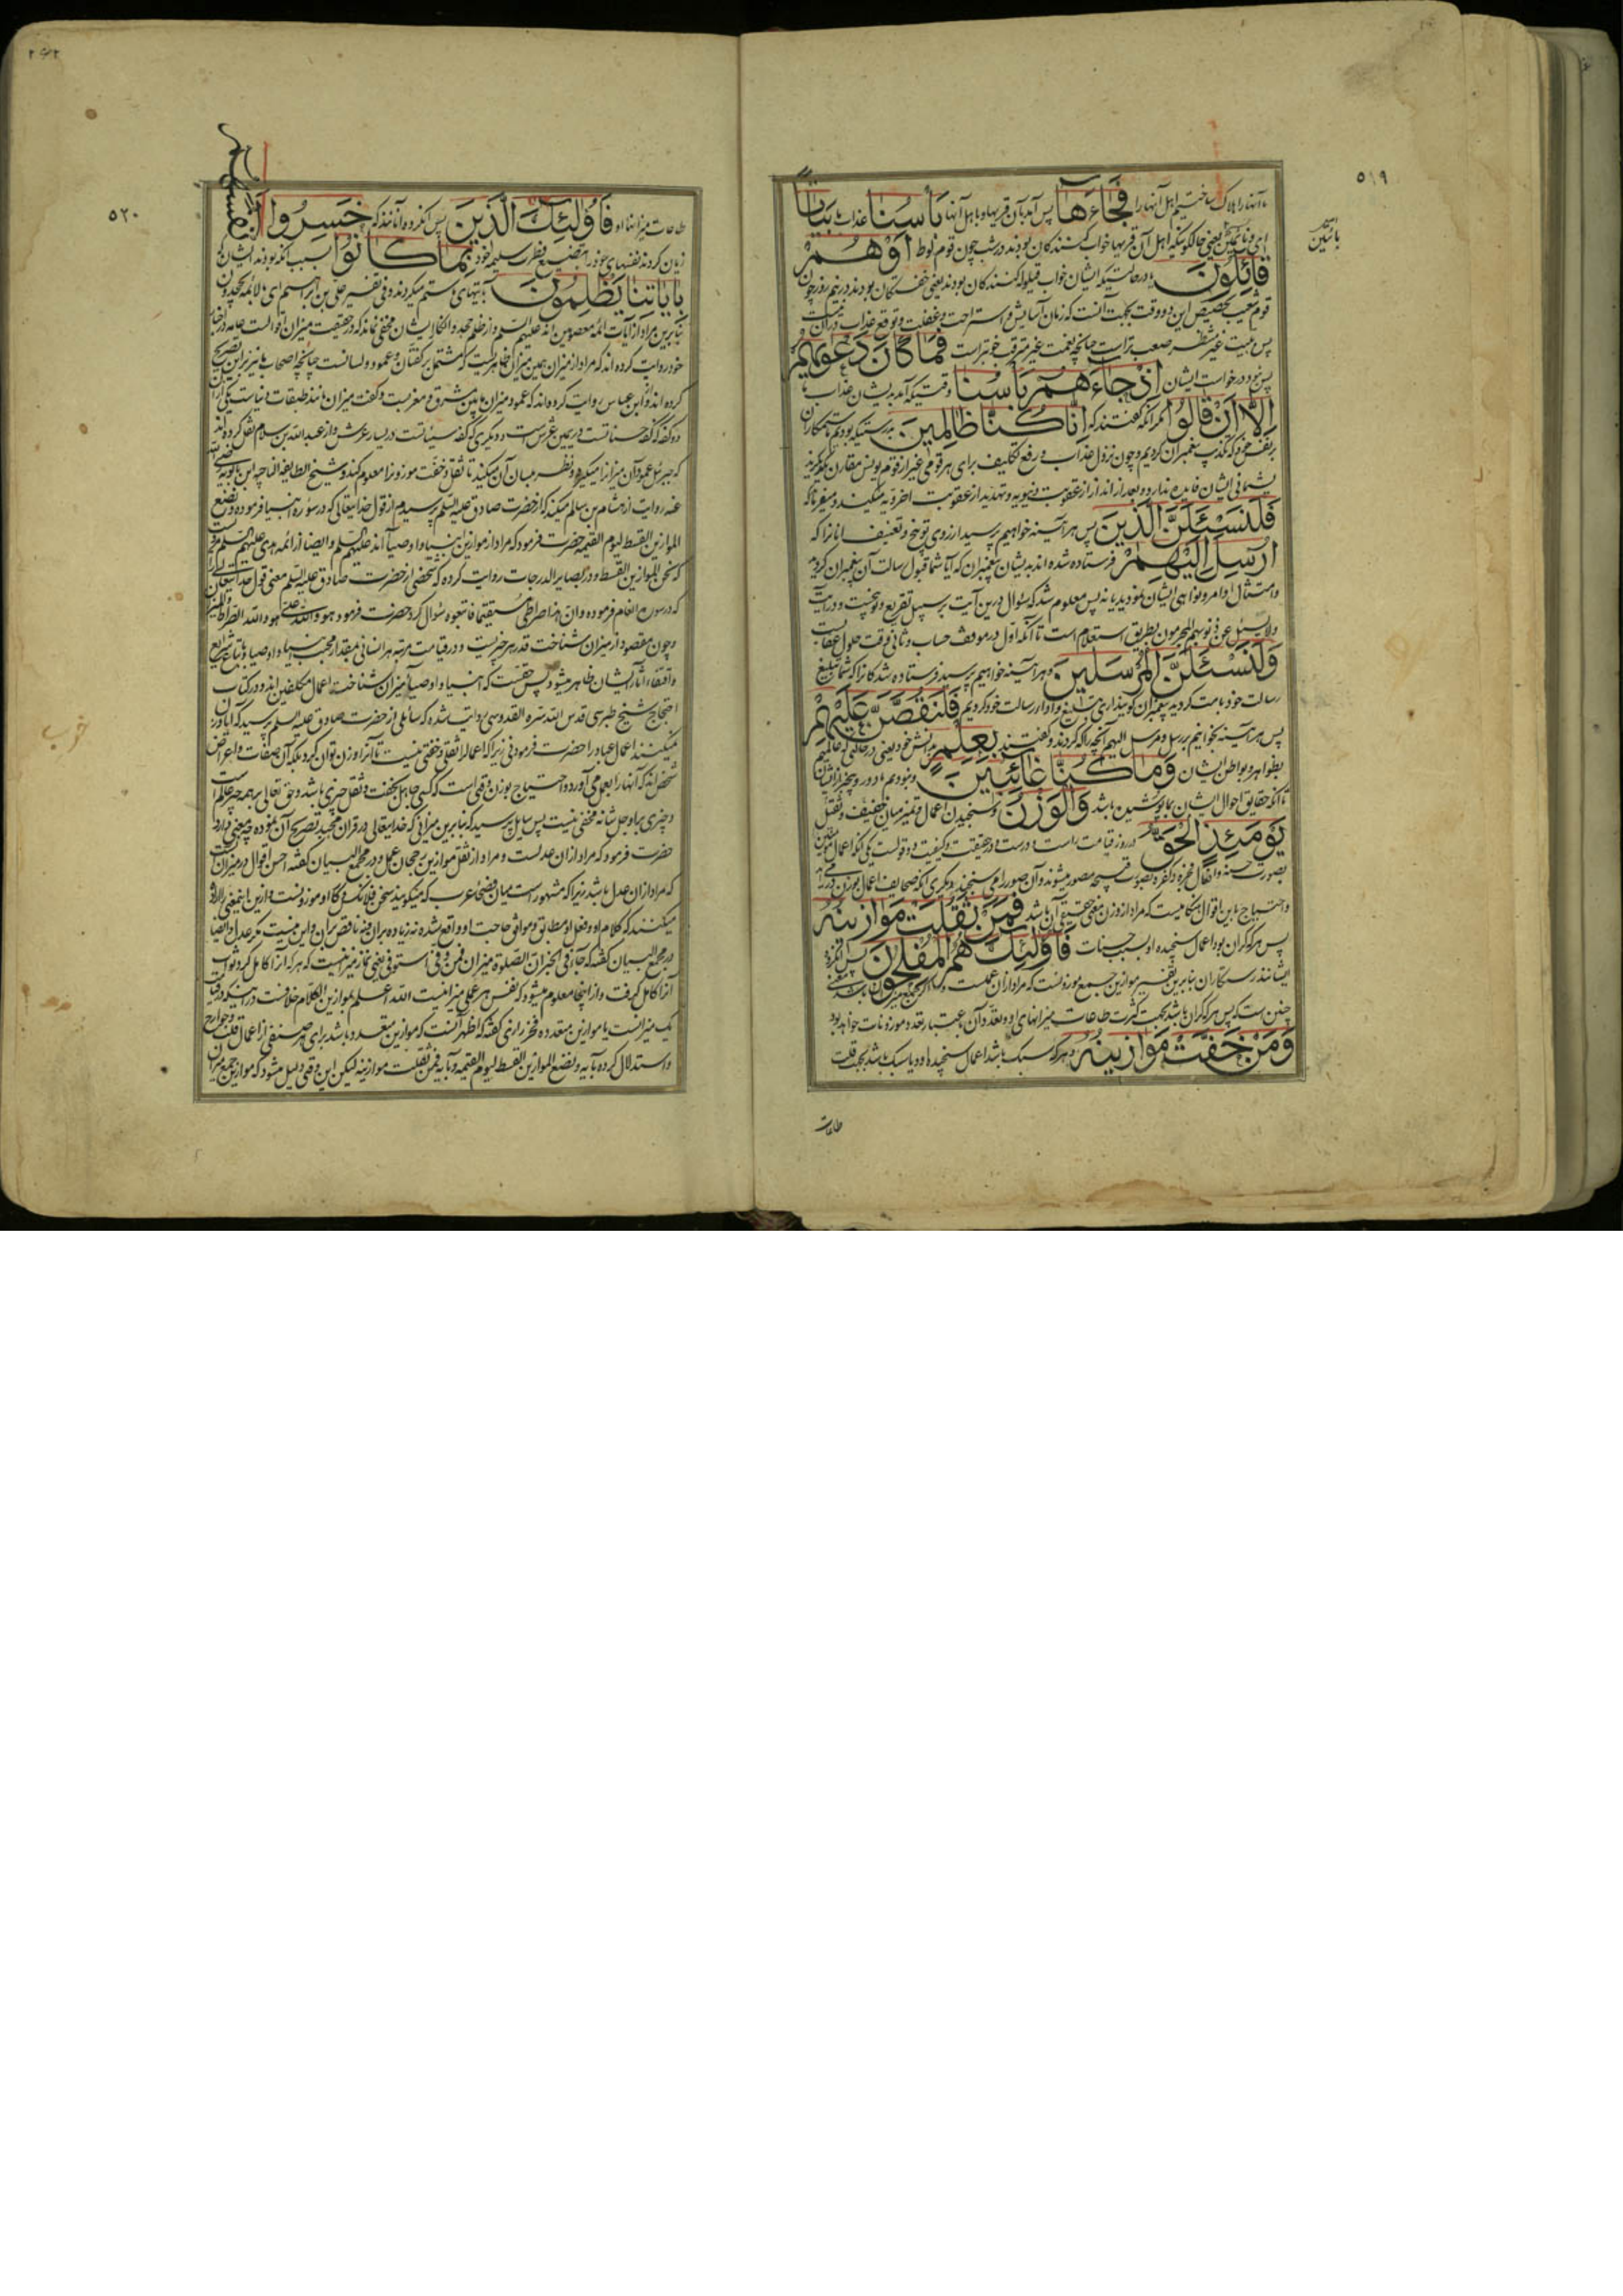 ۵۱۹
ما آنها را هلاک ساختیم اهل آنها را فَجَاءَهَا پس آمد بآن قریها و باهل آنها بَأْسُنَا عذاب ما بَيَاتًا
یعنی حالکونیکه اهل آن قریها خواب کنندکان بودند در شب چون قوم لوط أَوْ هُمْ
قَائِلُونَ یا در حالتیکه ایشان خواب قیلوله کنندکان بودند یعنی خفتکان بودند در نیم روز چون
قوم شعیب تخصیص این دو وقت بجهت آنست که زمان آسایش و استراحت و غفلت و توقع عذاب در آن نیست
پس غیر منتظر صعب تر است چنانچه نعمت غیر مترقب خوبتر است فَمَا كَانَ دَعْوٰيهُمْ
پس نبود درخواست ایشان إِذْ جَاءَهُمْ بَأْسُنَا وقتیکه آمد بدیشان عذاب ما
إِلَّا أَنْ قَالُوا مکر آنکه کفتند که إِنَّا كُنَّا ظَالِمِينَ بدرستیکه بودیم ما ستمکاران
بر نفس خود که تکذیب پیغمبران کردیم و چون نزول عذاب و رفع تکلیف برای هر قومی غیر از قوم یونس مقارن یکدیکرند
پشیمانی ایشان فایده ندارد و بعد از انذار از عقوبت دنیویه تهدید از عقوبت اخرویه میکند و میفرماید که
فَلَنَسْـَٔلَنَّ الَّذِينَ پس هر آینه خواهیم پرسید از روی توبیخ و تعنیف آنانرا که
أُرْسِلَ إِلَيْهِمْ فرستاده شده اند بدیشان پیغمبران که آیا شما قبول رسالت آن پیغمبران کردید
و امتثال اوامر و نواهی ایشان نمودید یا نه پس معلوم شد که سؤال درین آیت بر سبیل تقریع و توبیخست و در آیت
ولا یسئل عن ذنوبهم المجرمون بطریق استعلام است تا آنکه اول در موقف حساب و ثانی وقت حلول عقابست
وَلَنَسْـَٔلَنَّ الْمُرْسَلِينَ و هر آینه خواهیم پرسید فرستاده شدکانرا که شما تبلیغ
رسالت خود بامت کردید پیغمبران کویند آری تبلیغ و ادا رسالت خود کردیم فَلَنَقُصَّنَّ عَلَيْهِمْ
پس هر آینه بخوانیم بر رسل و مرسل الیهم آنچه را که کردند و کفتند بِعِلْمٍ بدانش خود یعنی در حالتی که عالمیم
بظواهر و بواطن ایشان وَمَا كُنَّا غَائِبِينَ و نبودیم ما دور و بیخبر از ایشان
تا آنکه حقایق احوال ایشان بما پوشیده باشد وَالْوَزْنُ و سنجیدن اعمال و تمییز میان خفیف و ثقیل
يَوْمَئِذٍ الْحَقُّ در روز قیامت راست و درست و در حقیقت و کیفیت وزن دو قولست یکی آنکه اعمال مؤمنین
بصورت حسنه و افعال فجره و کفره بصورت قبیحه مصور میشوند و آن صور را می سنجند و دیکری آنکه صحایف اعمال بوزن در آید
و احتیاج باین اقوال هنکامیست که مراد از وزن معنی حقیقی آن باشد فَمَنْ ثَقُلَتْ مَوَازِينُهُ
پس هر که کران بود اعمال سنجیده او بسبب حسنات فَأُولٰئِكَ هُمُ الْمُفْلِحُونَ پس آنکروه
ایشانند رستکاران بنابرین تفسیر موازین جمع موزونست که مراد از آن عملست و اکر جمع میزان باشد معنی
چنین است که پس هر که کران باشد بجهت کثرت طاعات میزانهای او و تعدد آن باعتبار تعدد موزونات خواهد بود
وَمَنْ خَفَّتْ مَوَازِينُهُ و هر که سبک باشد اعمال سنجیده او و یا سبک باشد بجهت قلت
طاعات
۵۲۰
طاعات میزانهای او فَأُولٰئِكَ الَّذِينَ پس آنکروه آنانند که خَسِرُوا أَنْفُسَهُمْ
زیان کردند نفسهای خود را بتضییع فطرت سلیمه خود بِمَا كَانُوا بسبب آنکه بودند ایشان که
بِآيَاتِنَا يَظْلِمُونَ بآیتهای ما ستم میکردند و فی تفسیر علی بن ابراهیم ای بالائمه یجحدون
بنابرین مراد از آیات ائمه معصومین اند علیهم السلم و از ظلم جحد و انکار ایشان مخفی نماند که در حقیقت میزان اقوالست عامه در اخبار
خود روایت کرده اند که مراد از میزان همین میزان ظاهریست که مشتمل بر کفتان و عمود و لسانست چنانچه اصحاب ما نیز برین تصریح
کرده اند و از ابن عباس روایت کرده اند که عمود میزان ما بین مشرق و مغربست و کفت میزان مانند طبقات دنیاست یکی از آن
دو کفه که کفه حسناتست در یمین عرش است و دیکری که کفه سیئاتست در یسار عرش و از عبد الله بن سلام نقل کرده اند
که جبرئیل عمود آن میزانرا میکیرد و نظر بمیان آن میکند تا ثقل و خفت موزونرا معلوم کند و شیخ الطایفه الناجیه ابن بابویه رضی الله
عنه روایت از هشام بن سالم میکند که از حضرت صادق علیه السلم پرسیدم از قول خدایتعالی که در سوره انبیا فرموده و نضع
الموازین القسط لیوم القیمه حضرت فرمود که مراد از موازین انبیا و اوصیا اند علیهم السلم و ایضا از ائمه هدی علیهم السلم مرویست
که نحن الموازین القسط و در بصایر الدرجات روایت کرده که شخصی از حضرت صادق علیه السلم معنی قول خدایتعالی را
که در سوره انعام فرموده و ان هذا صراطی مستقیما فاتبعوه سؤال کرد حضرت فرمود هو والله علی هو والله الصراط والمیزان
و چون مقصود از میزان شناخت قدر هر چیزیست و در قیامت مرتبه هر انسانی بمقدار محبت انبیا و اوصیا و متابعت شرایع
و اقتفاء آثار ایشان ظاهر میشود پس حقست که انبیا و اوصیا میزان شناخت اعمال مکلفین اند و در کتاب
احتجاج شیخ طبرسی قدس الله سره القدوسی روایت شده که سائلی از حضرت صادق علیه السلم پرسید که آیا وزن
میکنند اعمال عباد را حضرت فرمود نی زیرا که اعمال را ثقلی و خفتی نیست تا آنرا وزن توان کرد بلکه آن صفات و اعراض
شخص اند که آنها را بعمل می آورد و احتیاج بوزن وقتی است که کسی جاهل بخفت و ثقل چیزی باشد و حق تعالی بر همه چیز عالم است
و چیزی بر او جل شانه مخفی نیست پس سایل پرسید که بنابرین میزانی که خدایتعالی در قران مجید تصریح آن نموده چه معنی دارد
حضرت فرمود که مراد از آن عدلست و مراد از ثقل موازین رجحان عمل و در مجمع البیان کفته احسن اقوال در میزان اینست
که مراد از آن عدل باشد زیرا که مشهور است میان فصحاء عرب که میکویند سخن فلانکس و کار او موزونست و ازین این معنی اراده
میکنند که کلام او و فعل او مطابق و موافق حاجت او واقع شده نه زیاده بر آن و نه ناقص از آن و این نیست مکر عدل و ایضا
در مجمع البیان کفته که جاء فی الخبر ان الصلوة میزان فمن وفی استوفی یعنی نماز میزانیست که هر که آنرا کامل کرد ثواب
آنرا کامل کرفت و از اینجا معلوم میشود که نفس هر عملی میزانیست الله اعلم بموازین الکلام خلافست در اینکه در قیامت
یک میزانست یا موازین متعدده فخر رازی کفته که اظهر آنست که موازین متعدد باشد برای هر صنفی از اعمال قلب و جوارح
و استدلال کرده بآیه و نضع الموازین القسط لیوم القیمه و بآیه فمن ثقلت موازینه لیکن این وقتی دلیل میشود که موازین جمع میزان
خوب